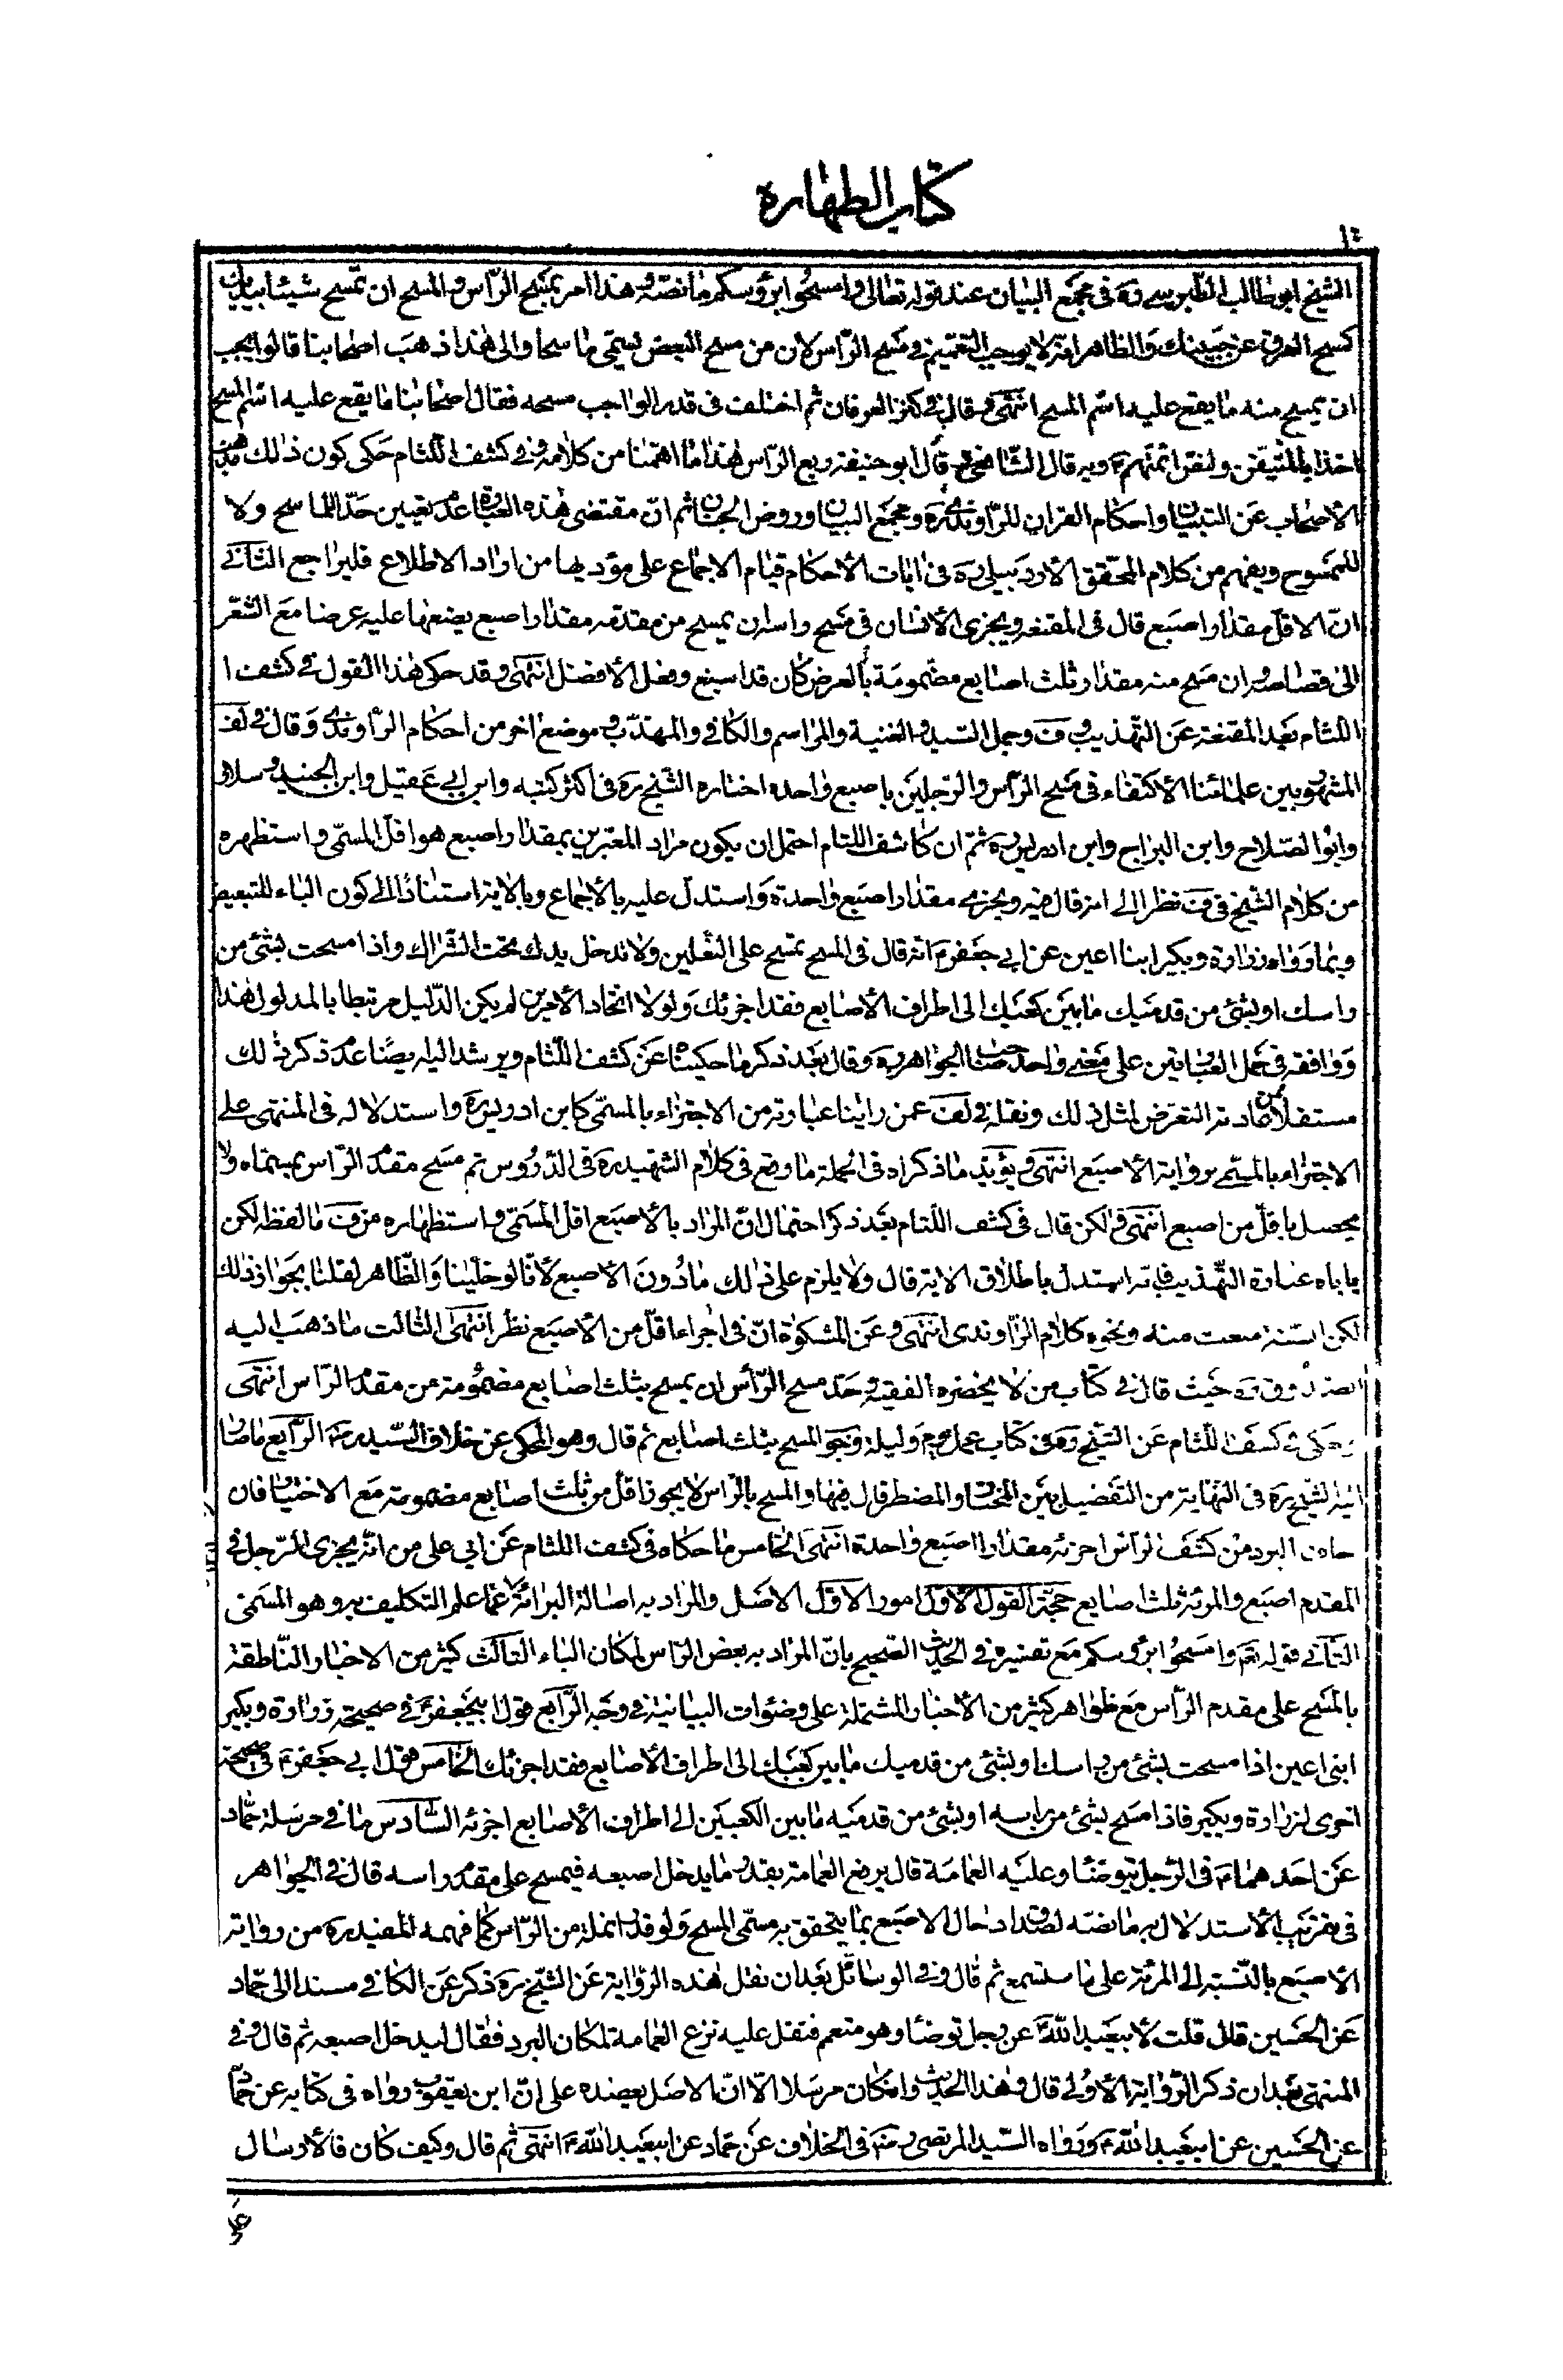 كتاب الطهارة
الشيخ ابو طالب الطبرسي قه في مجمع البيان عند قوله تعالى وامسحوا برؤسكم ما نصّه وهذا امر بمسح الرّأس والمسح ان تمسح شيئا بيدك
كمسح العرق عن جبينك والظاهر انه لا يوجب التعميم في مسح الرّأس لان من مسح البعض يسمّى ماسحا والى هذا ذهب اصحابنا قالوا يجب
ان يمسح منه ما يقع عليه اسم المسح انتهى وقال في كنز العرفان ثم اختلف في قدر الواجب مسحه فقال اصحابنا ما يقع عليه اسم المسح
اخذا بالمتيقّن ولنصّ ائمّتهم ع وبه قال الشّافعي وقال ابو حنيفة ربع الرّأس هذا ما اهمّنا من كلامه وفي كشف اللّثام حكى كون ذلك مذهب
الأصحاب عن التبيان واحكام القران للرّاوندي ره ومجمع البيان وروض الجنان ثم انّ مقتضى هذه العبارة عدم تعيين حدّ للماسح ولا
للممسوح ويفهم من كلام المحقّق الأردبيلي ره في ايات الأحكام قيام الاجماع على مؤديها من اراد الاطلاع فليراجع الثّاني
انّ الاقل مقدار اصبع قال في المقنعه ويجزى الأنسان في مسح راسه ان يمسح من مقدّمه مقدار اصبع يضعها عليه عرضا مع الشّعر
الى قصاصه وان مسح منه مقدار ثلث اصابع مضمومة بالعرض كان قد اسبغ وفعل الأفضل انتهى وقد حكى هذا القول في كشف ا
اللثام بعد المقنعة عن التهذيب وف وجمل السّيد والغنية والمراسم والكافي والمهذّب وموضع اخر من احكام الرّاوندي وقال في لف
المشهور بين علمائنا الأكتفاء في مسح الرّأس والرّجلين باصبع واحده اختاره الشّيخ ره في اكثر كتبه وابن ابي عقيل وابن الجنيد وسلار
وابو الصّلاح وابن البراج وابن ادريس ره ثمّ ان كاشف اللثام احتمل ان يكون مراد المعبّرين بمقدار اصبع هو اقلّ المسمّى واستظهره
من كلام الشّيخ في ف نظرا الى انه قال فيه ويجزي مقدار اصبع واحدة واستدلّ عليه بالأجماع وبالاية استنادا الى كون الباء للتبعيض
وبما رواه زرارة وبكير ابنا اعين عن ابي جعفر ع انه قال في المسح تمسح على النّعلين ولا تدخل يدك تحت الشّراك واذا مسحت بشئ من
راسك او بشئ من قدميك ما بين كعبيك الى اطراف الأصابع فقد اجزئك ولولا اتحاد الأمرين لم يكن الدّليل مرتبطا بالمدلول هذا
ووافقه في حمل العبارتين على معنى واحد صاحب الجواهر ره وقال بعد ذكر ما حكيناه عن كشف اللّثام ويرشد اليه ايضًا عدم ذكر ذلك
مستقلّا ممن عادته التعرّض لمثل ذلك ونقله في لف عمن راينا عبارته من الاجتزاء بالمسمّى كابن ادريس ره واستدلاله في المنتهى على
الاجتزاء بالمسمّى برواية الأصبع انتهى ويؤيّد ما ذكراه في الجملة ما وقع في كلام الشّهيد ره في الدّروس ثم مسح مقدم الرّأس بمسمّاه ولا
يحصل باقلّ من اصبع انتهى لكن قال في كشف اللّثام بعد ذكر احتمال انّ المراد بالأصبع اقل المسمّى واستظهاره من ف ما لفظه لكن
ياباه عبارة التّهذيب فانه استدل باطلاق الاية قال ولا يلزم على ذلك ما دون الأصبع لأنّا لو خلّينا والظّاهر لقلنا بجواز ذلك
لكن السّنة منعت منه ونحوه كلام الرّاوندى انتهى وعن المشكوة انّ في اجزاء اقلّ من الأصبع نظر انتهى الثالث ما ذهب اليه
الصدوق ره حيث قال في كتاب من لا يحضره الفقيه وحدّ مسح الرّأس ان يمسح بثلث اصابع مضمومة من مقدم الرّأس انتهى
وحكى في كشف اللّثام عن الشّيخ ره في كتاب عمل يوم وليلة وجوب المسح بثلث اصابع ثم قال وهو المحكى عن خلاف السّيد ره الرّابع ما صار
اليه الشيخ ره في النّهاية من التّفصيل بين المختار والمضطر قال فيها والمسح بالرّاس لا يجوز اقل من ثلث اصابع مضمومة مع الاختيار فان
خاف البرد من كشف الرّأس اجزئه مقدار اصبع واحدة انتهى الخامس ما حكاه في كشف اللثام عن ابي على من انّه يجزى الرّجل في
المقدم اصبع والمرئة ثلث اصابع حجّة القول الأوّل امور الأوّل الاصل والمراد به اصالة البرائة عمّا علم التكليف به وهو المسمّى
الثّاني قوله تع وامسحوا برؤسكم مع تفسيره في الحديث الصّحيح بانّ المراد به بعض الرّاس لمكان الباء الثّالث كثير من الاخبار النّاطقة
بالمسح على مقدم الرّأس مع ظواهر كثير من الأخبار المشتملة على وضوئات البيانية في وجه الرّابع قول ابيجعفر ع في صحيحة زرارة وبكير
ابنى اعين اذا مسحت بشئ من راسك او بشئ من قدميك ما بين كعبيك الى اطراف الأصابع فقد اجزئك الخامس قول ابي جعفر ع في صحيحة
اخرى لزرارة وبكير فاذا مسح بشئ من راسه او بشئ من قدميه ما بين الكعبين الى اطراف الأصابع اجزئه السّادس ما في مرسلة حمّاد
عن احدهما ع في الرّجل يتوضّأ وعليه العمامة قال يرفع العمامة بقدر ما يدخل اصبعه فيمسح على مقدم راسه قال في الجواهر
في تقريب الأستدلال به ما نصّه لصدق ادخال الاصبع بما يتحقق به مسمّى المسح ولو قدر انملة من الرّاس كما فهمه المفيد ره من رواية
الأصبع بالنّسبة الى المرئة على ما ستسمع ثم قال وفي الوسائل بعد ان نقل هذه الرّواية عن الشّيخ ره ذكر عن الكافي مسندا الى حمّاد
عن الحسين قال قلت لأبيعبد اللّه ع عن رجل توضّأ وهو متعمم فثقل عليه نزع العمامة لمكان البرد فقال ليدخل اصبعه ثم قال وفي
المنتهى بعد ان ذكر الرّواية الأولى قال وهذا الحديث وان كان مرسلا الّا انّ الاصل يعضده على انّ ابن يعقوب رواه في كتابه عن حمّاد
عن الحسين عن ابيعبد اللّه ع ورواه السّيد المرتضى ره في الخلاف عن حمّاد عن ابيعبد اللّه ع انتهى ثم قال وكيف كان فالأرسال